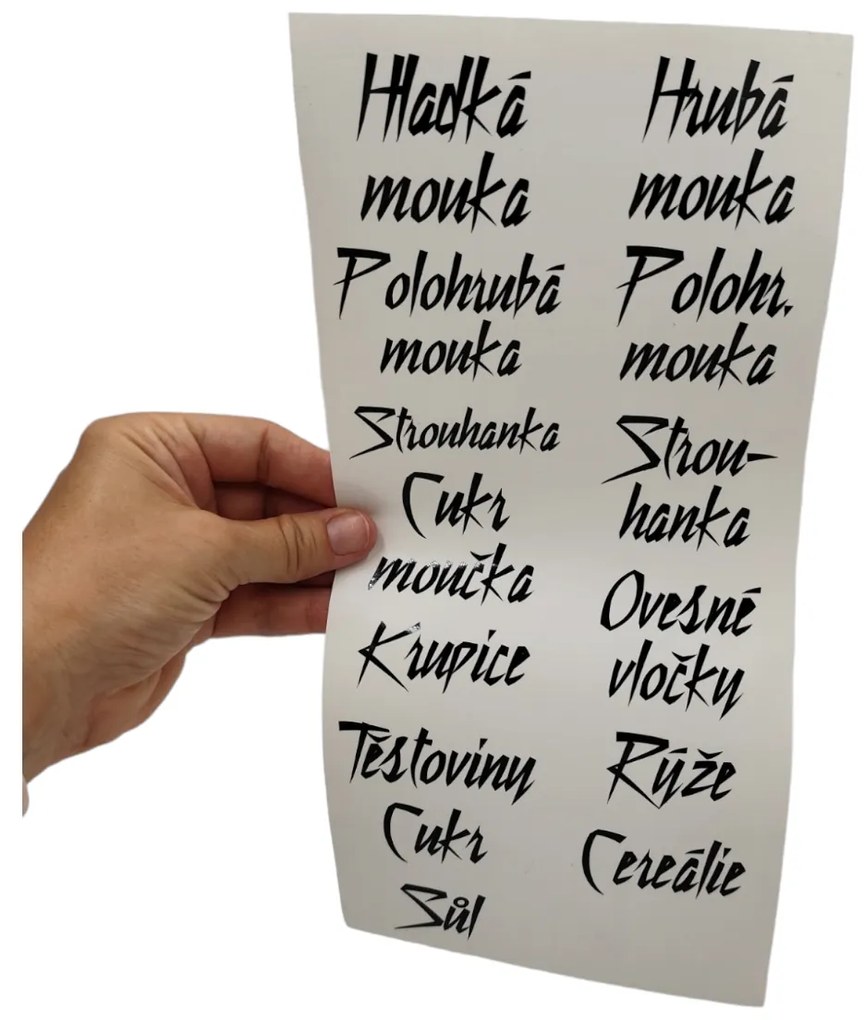 Hladká
mouka
Polohrubá
mouka
Strouhanka
Cukr
moučka
Krupice
Těstoviny
Cukr
Sůl
Hrubá
mouka
Polohr.
mouka
Strou-
hanka
Ovesné
vločky
Rýže
Cereálie